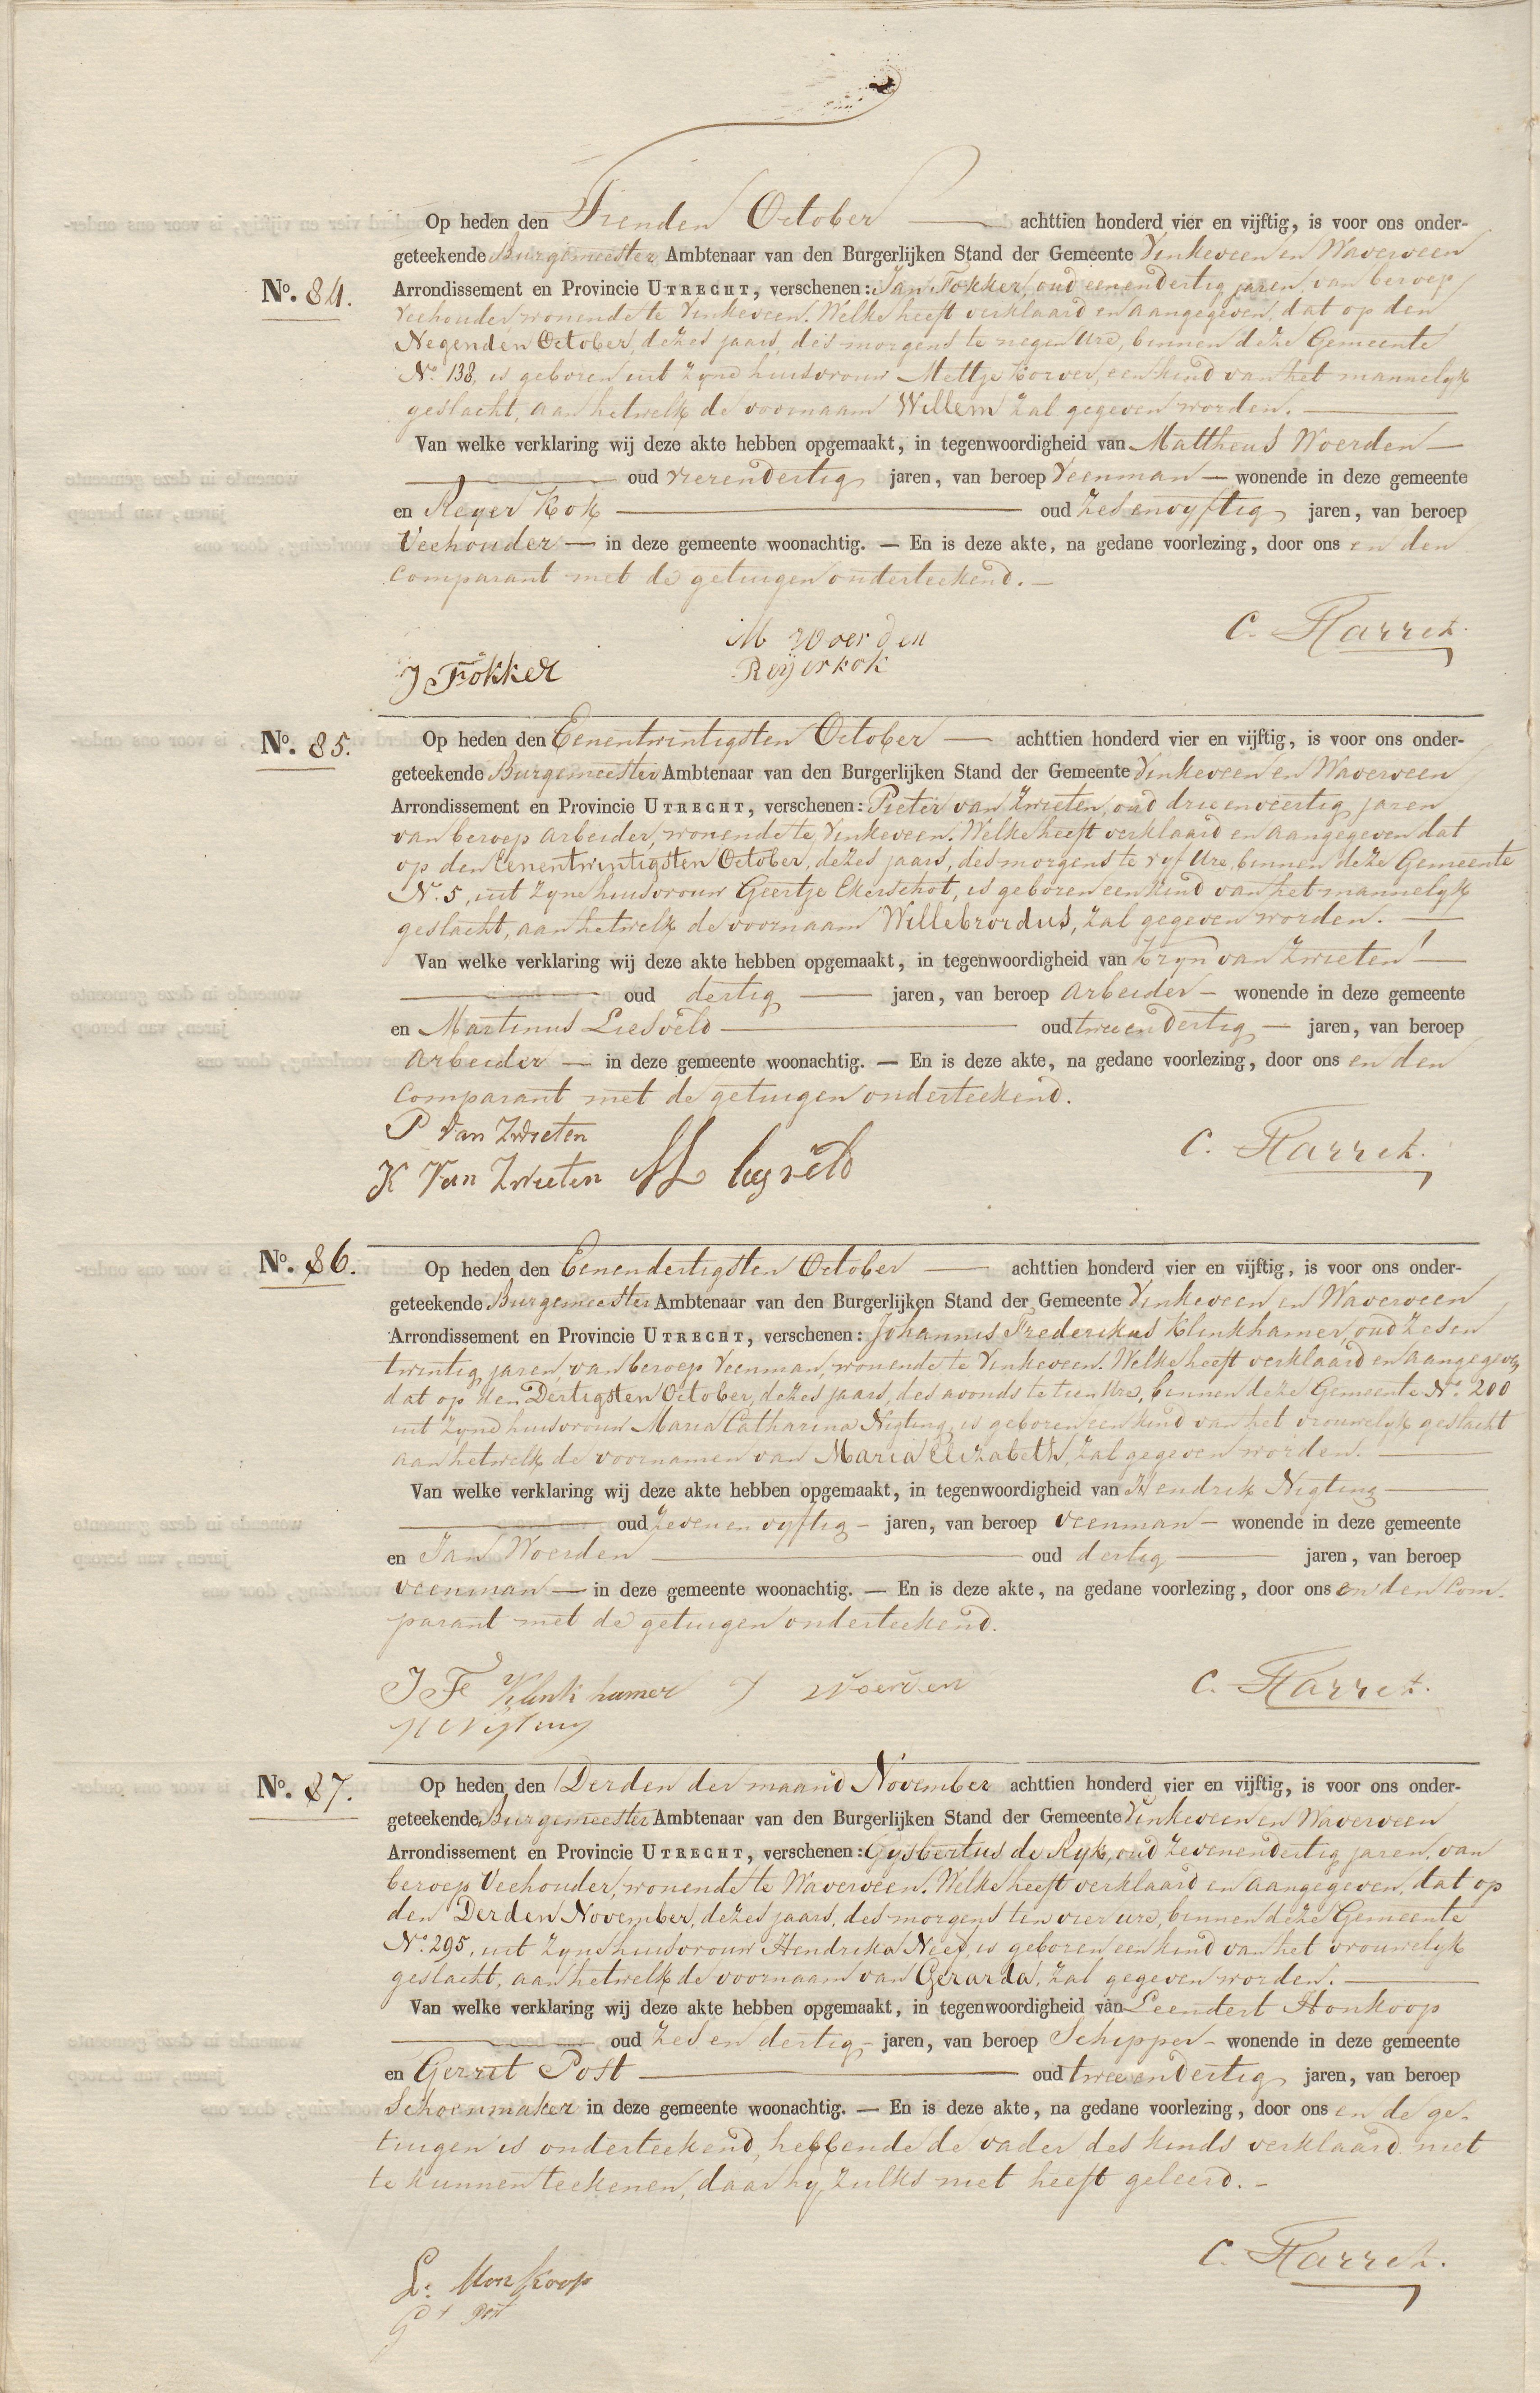 Op heden den Tienden October achttien honderd vier en vijftig, is voor ons onder-
geteekende Burgemeester Ambtenaar van den Burgerlijken Stand der Gemeente Vinkeveen en Waverveen
No. 84. Arrondissement en Provincie UTRECHT, verschenen: Jan Fokker, oud eenendertig jaren, van beroep
Veehouder, wonende te Vinkeveen. Welke heeft verklaard en aangegeven, dat op den
Negenden October, dezes jaars, des morgens te negen Ure, binnen deze Gemeente
No. 138, is geboren uit zyne huisvrouw Mettje Korver, een kind van het mannelyk
geslacht, aan hetwelk de voornaam Willem zal gegeven worden.
Van welke verklaring wij deze akte hebben opgemaakt, in tegenwoordigheid van Mattheus Woerden
oud vierendertig jaren, van beroep Veenman wonende in deze gemeente
en Reyer Kok oud zesenvyftig jaren, van beroep
Veehouder in deze gemeente woonachtig. — En is deze akte, na gedane voorlezing, door ons en den
Comparant met de getuigen onderteekend.
M Woerden
C. Harret.
J Fokker
Reyer kok
No. 85. Op heden den Eenentwintigsten October achttien honderd vier en vijftig, is voor ons onder-
geteekende Burgemeester Ambtenaar van den Burgerlijken Stand der Gemeente Vinkeveen en Waverveen
Arrondissement en Provincie UTRECHT, verschenen: Pieter van Zwieten, oud drieenveertig jaren
van beroep arbeider, wonende te Vinkeveen. Welke heeft verklaard en aangegeven dat
op den Eenentwintigsten October, dezes jaars, des morgens te vyf Ure, binnen deze Gemeente
No. 5, uit zyne huisvrouw Geertje Ekerschot, is geboren een kind van het mannelyk
geslacht, aan hetwelk de voornaam Willebrordus, zal gegeven worden.
Van welke verklaring wij deze akte hebben opgemaakt, in tegenwoordigheid van Kryn van Zwieten
oud dertig jaren, van beroep arbeider wonende in deze gemeente
en Martinus Liesveld oud tweeendertig jaren, van beroep
arbeider in deze gemeente woonachtig. — En is deze akte, na gedane voorlezing, door ons en den
Comparant met de getuigen onderteekend.
P Van Zwieten
C. Harret.
K Van Zwieten M lesveld
No. 86. Op heden den Eenendertigsten October achttien honderd vier en vijftig, is voor ons onder-
geteekende Burgemeester Ambtenaar van den Burgerlijken Stand der Gemeente Vinkeveen en Waverveen
Arrondissement en Provincie UTRECHT, verschenen: Johannes Frederikus Klinkhamer, oud zesen
twintig jaren, van beroep Veenman, wonende te Vinkeveen. Welke heeft verklaard en aangegeven
dat op den Dertigsten October, dezes jaars, des avonds te tien Ure, binnen deze Gemeente No. 200
uit zyne huisvrouw Maria Catharina Nigting, is geboren een kind van het vrouwelyk geslacht
aan hetwelk de voornamen van Maria Elizabeth, zal gegeven worden.
Van welke verklaring wij deze akte hebben opgemaakt, in tegenwoordigheid van Hendrik Nigting
oud Zevenenvyftig jaren, van beroep veenman wonende in deze gemeente
en Jan Woerden oud dertig jaren, van beroep
veenman in deze gemeente woonachtig. — En is deze akte, na gedane voorlezing, door ons en den Com-
parant met de getuigen onderteekend.
J F Klinkhamer J Woerden
C. Harret.
H Nigting
No. 87. Op heden den Derden der maand November achttien honderd vier en vijftig, is voor ons onder-
geteekende Burgemeester Ambtenaar van den Burgerlijken Stand der Gemeente Vinkeveen en Waverveen
Arrondissement en Provincie UTRECHT, verschenen: Gysbertus de Ryk, oud zevenendertig jaren, van
beroep Veehouder, wonende te Waverveen. Welke heeft verklaard en aangegeven, dat op
den Derden November, dezes jaars, des morgens ten vier ure, binnen deze Gemeente
No. 295, uit zyne huisvrouw Hendrika Nees, is geboren een kind van het vrouwelyk
geslacht, aan hetwelk de voornaam van Gerarda, zal gegeven worden.
Van welke verklaring wij deze akte hebben opgemaakt, in tegenwoordigheid van Leendert Honkoop
oud zesendertig jaren, van beroep Schipper wonende in deze gemeente
en Gerrit Post oud tweeendertig jaren, van beroep
Schoenmaker in deze gemeente woonachtig. — En is deze akte, na gedane voorlezing, door ons en de ge-
tuigen is onderteekend, hebbende de vader des kinds verklaard niet
te kunnen teekenen, daar hy zulks niet heeft geleerd.
C. Harret.
L. Honkoop
Gt Post